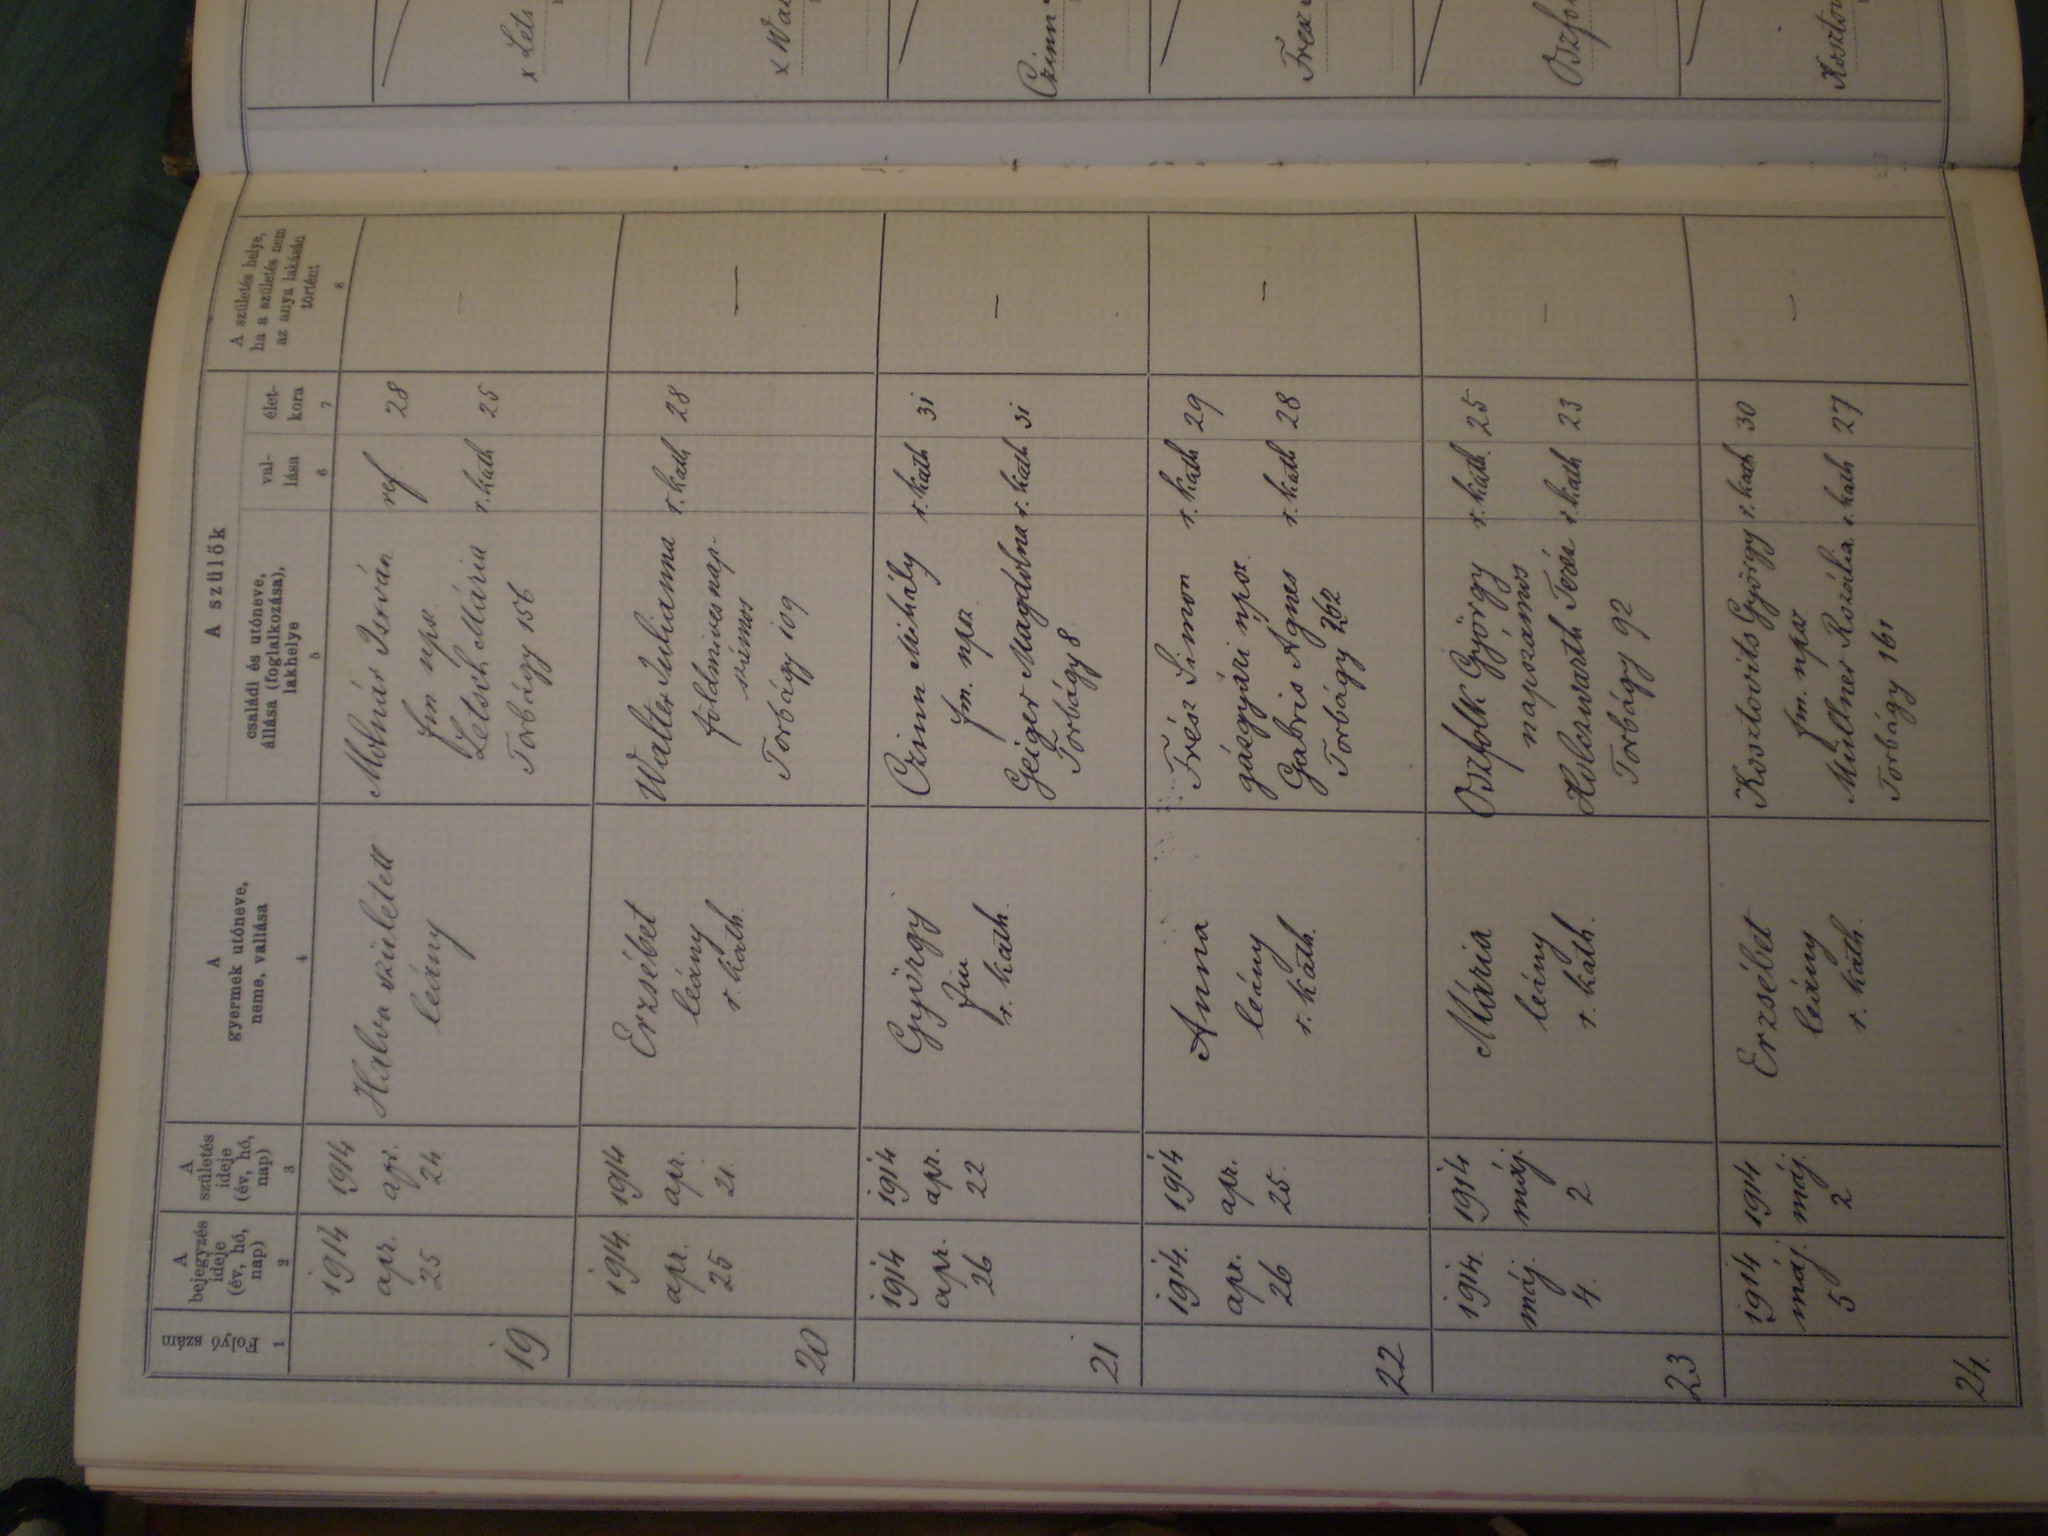 1
Folyó szám
2
A
bejegyzés
ideje
(év, hó,
nap)
3
A
születés
ideje
(év, hó,
nap)
4
A
gyermek utóneve,
neme, vallása
A szülők
5
családi és utóneve,
állása (foglalkozása),
lakhelye
6
val-
lása
7
élet-
kora
8
A születés helye,
ha a születés nem
az anya lakásán
történt
19
1914
apr.
25
1914
apr.
24
Halva született
leány
Molnár István
fm nps.
Letsch Mária
Torbágy 156
ref.
r. kath
28
25
—
20
1914.
apr.
25
1914
apr.
21.
Erzsébet
leány
r. kath.
Walter Julianna
földmives nap-
számos
Torbágy 109
r. kath
28
—
21
1914
apr.
26
1914
apr.
22
György
fiu
r. kath.
Czinn Mihály
fm. npsz.
Geiger Magdolna
Torbágy 8
r. kath
r. kath
31
31
—
22
1914.
apr.
26
1914
apr.
25.
Anna
leány
r. kath.
Frész Simon
gázgyári npsz.
Gabris Agnes
Torbágy 262
r. kath
r. kath
29
28
—
23
1914.
máj.
4.
1914.
máj.
2
Mária
leány
r. kath.
Oszfolk György
napszámos
Holczwarth Teréz
Torbágy 92
r. kath.
r. kath
25
23
—
24.
1914
máj.
5
1914
máj.
2
Erzsébet
leány
r. kath.
Kosztovits György
fm. npsz
Müllner Rozália
Torbágy 161
r. kath
r. kath
30
27
—
x Lets
x Wal
Czinn